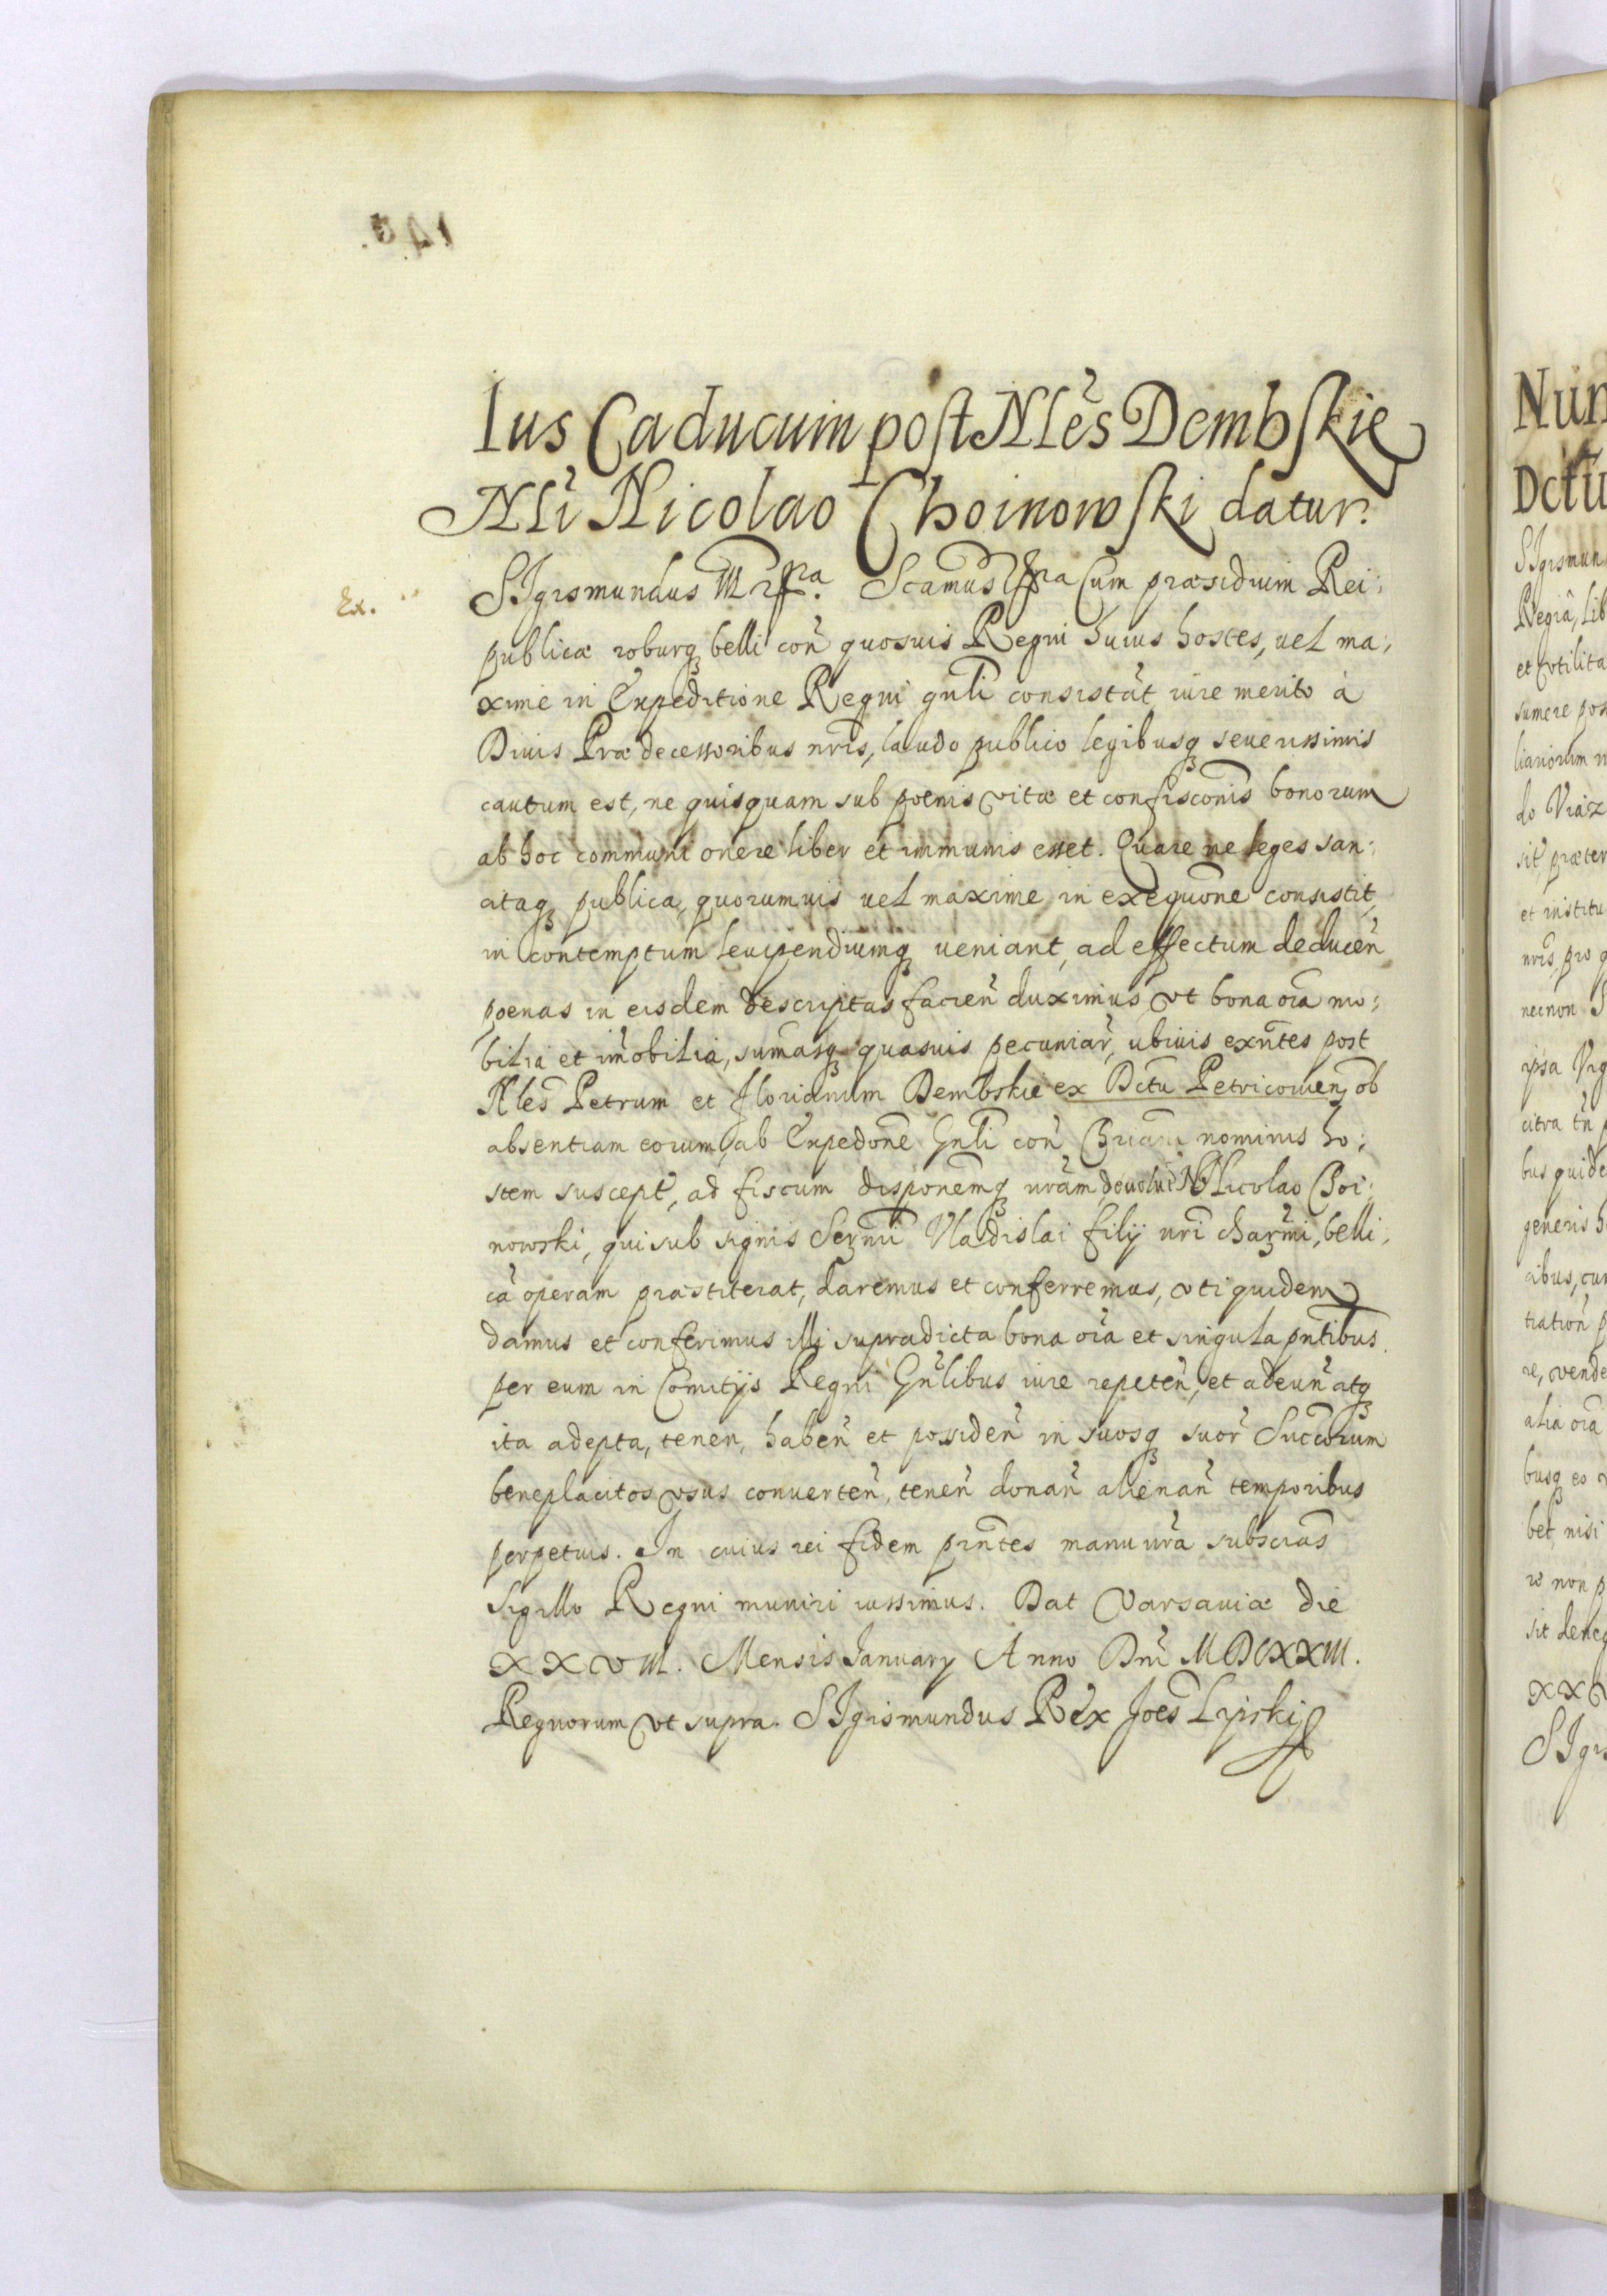 Ius Caducum post Nlẽs Dembskie
Nlĩ Nicolao Choinowski datur.
Ex.
SIgismundus III r̃ pra. Scamus̃ pra Cum præsidium Rei:
publicæ roburq̨ belli con̄ quosuis Regni huius hostes, vel ma:
xime in Expeditione Regni gn̄li consistat̄ iure merito à
Diuis Prædecessoribus nrīs, laudo publico legibusq̨ seuerissimis
cautum est, ne quisquam sub poenis vitæ et confisconīs bonorum
ab hoc communi onere liber et immunis esset. Quare ne leges san:
ctaq̨ publica, quorumuis vel maxime in exequōne consistit,
in contemptum leuipendiumq̨ veniant, ad effectum deducen̄
poenas in eisdem descriptas facien̄ duximus, vt bona oīa mo:
bilia et im̄obilia, sum̄asq̨ quasuis pecuniar̄, ubiuis exn̄tes post
Nlēs Petrum et Florianum Dembskie ex Dctu Petricouien̨ ob
absentiam eorum, ab Expedōne Gn̄li con̄ Chriani nominis ho:
stem suscept̄, ad fiscum disponem̄q̨ nrām deuoluī Nlī Nicolao Choi:
nowski, qui sub signis Serm̄i Vladislai filij nrī charm̄i, belli:
cā operam præstiterat, daremus et conferremus, vti quidem
damus et conferimus illi supradicta bona oīa et singula pn̄tibus.
per eum in Comitijs Regni Gn̄libus iure repeten̄, et adeun̄ atq̨
ita adepta, tenen, haben̄ et possiden̄ in suosq̨ suor̄ Succōrum
beneplacitos vsus conuerten̄, tenen̄ donan̄ alienan̄ temporibus
perpetuis. In cuius rei fidem prn̄tes manu nrā subscrās
Sigillo Regni muniri iussimus. Dat Varsauiæ die
XXVIII. Mensis January Anno Dnī MDCXXIII.
Regnorum vt supra. SIgismundus Rex Joēs Lipski